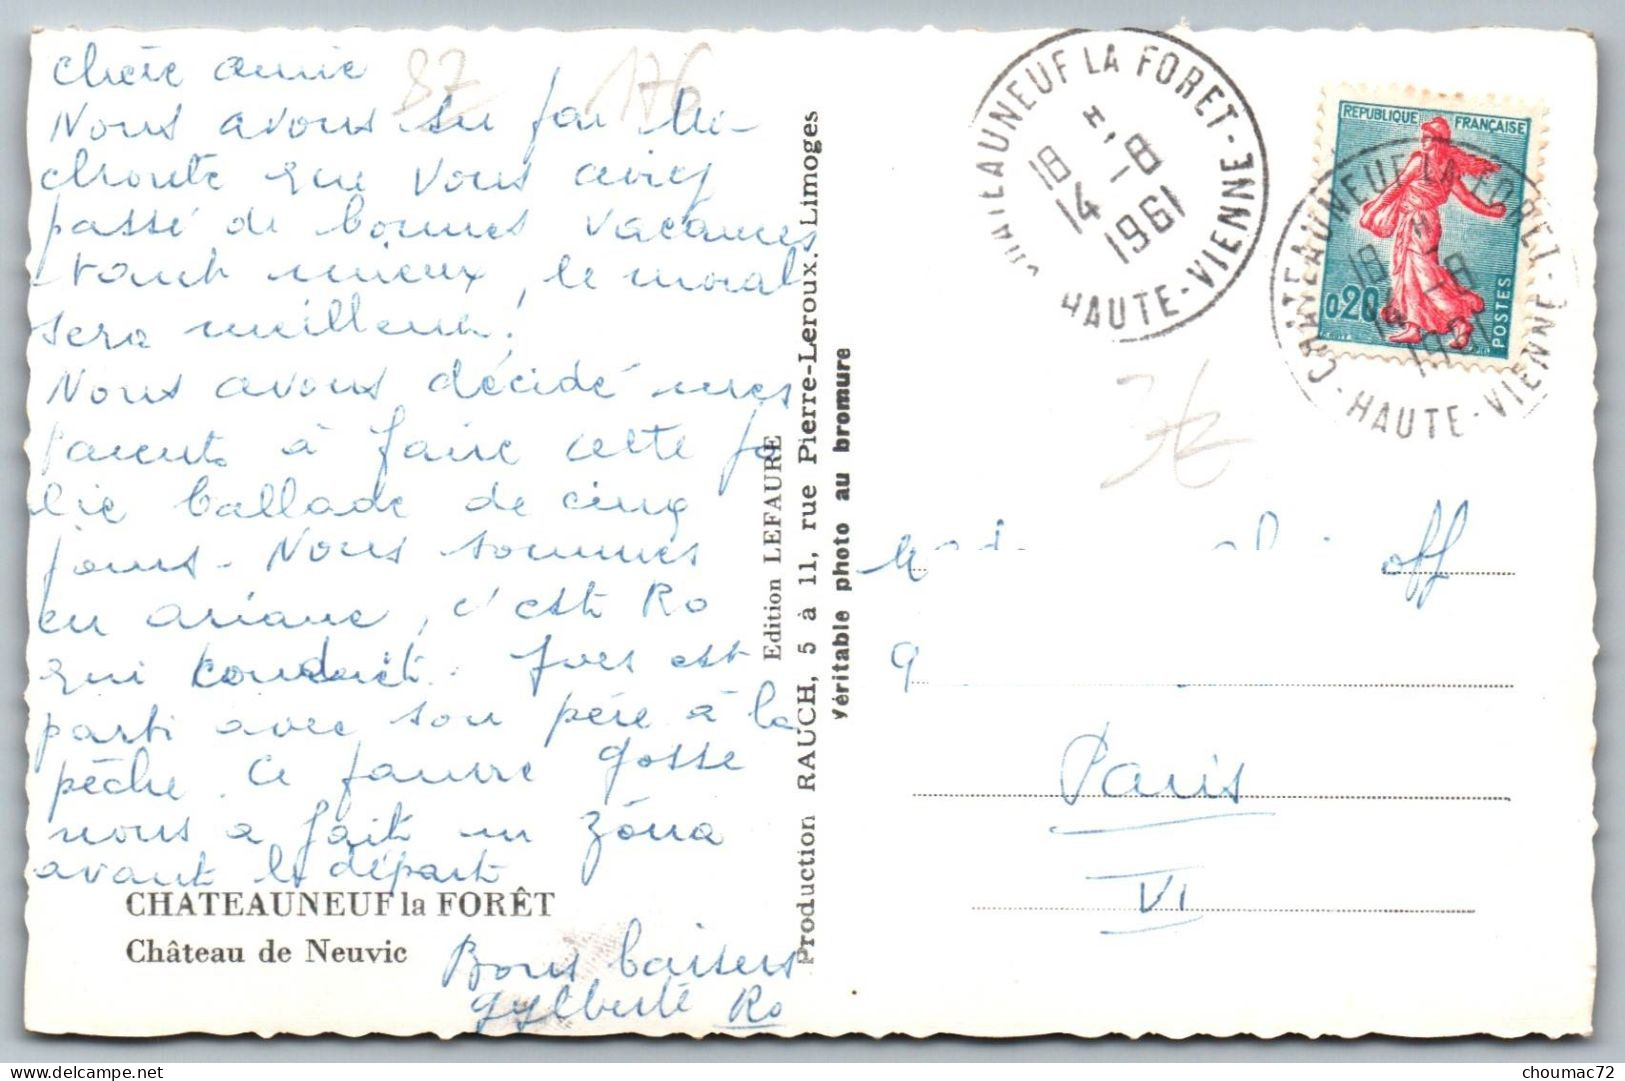 chère amie
Nous avons su par Mi-
choute que vous aviez
passé de bonnes vacances
tant mieux, le moral
sera meilleur!
Nous avons décidé mes
parents à faire cette jo
lie ballade de cinq
jours. Nous sommes
en ariane, c'est Ro
qui conduit. Yves est
parti avec son père à la
pêche. Ce pauvre gosse
nous a fait un zôna
avant le départ
Bons baisers
Gylberte Ro
CHATEAUNEUF la FORÊT
Château de Neuvic
87
176
Edition LEFAURE
Production RAUCH, 5 à 11, rue Pierre-Leroux, Limoges
Véritable photo au bromure
CHATEAUNEUF LA FORET - HAUTE-VIENNE
18 H
14 - 8
1961
REPUBLIQUE FRANÇAISE
0,20
POSTES
CHATEAUNEUF LA FORET - HAUTE-VIENNE
18 H
14 - 8
1961
off
9
Paris
VI
choumac72